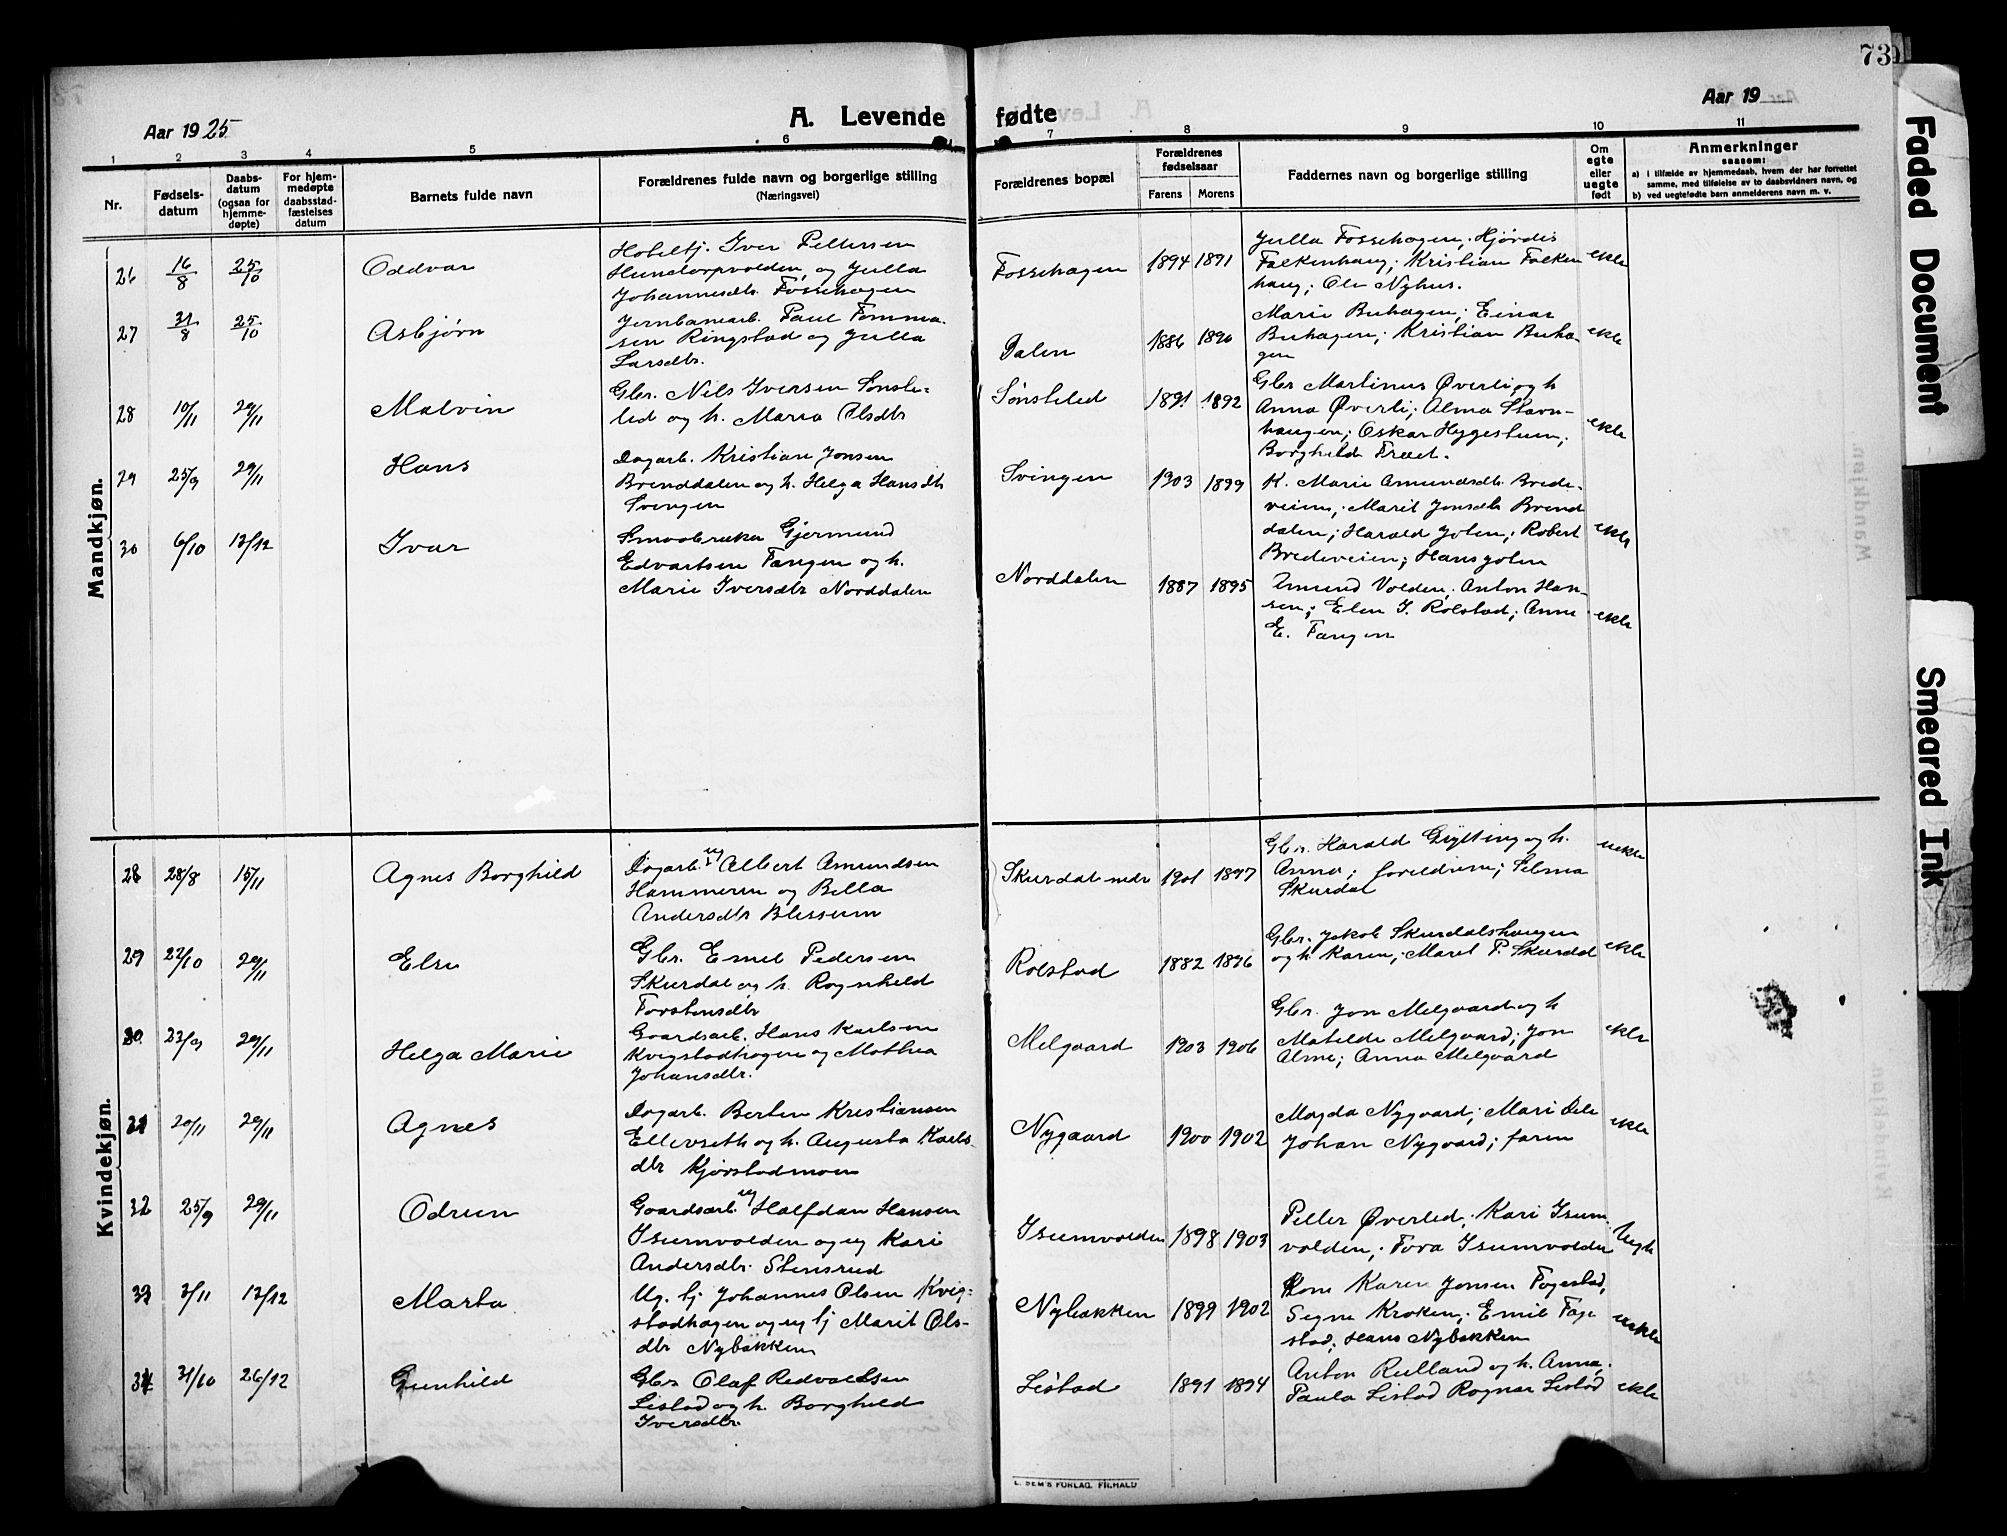 73
Aar 1925
A. Levende fødte
Aar 19
1 2 3 4 5 6 7 8 9 10 11
Nr.
Fødsels-
datum
Daabs-
datum
(ogsaa for
hjemme-
døpte)
For hjem-
medøpte
daabsstad-
fæstelses
datum
Barnets fulde navn
Forældrenes fulde navn og borgerlige stilling
(Næringsvei)
Forældrenes bopæl
Forældrenes
fødselsaar
Farens Morens
Faddernes navn og borgerlige stilling
Om
egte
eller
uegte
født
Anmerkninger
saasom:
a) i tilfælde av hjemmedaab, hvem der har forrettet
samme, med tilføielse av to daabsvidners navn, og
b) ved uegtefødte barn anmelderens navn m. v.
Mandkjøn.
26 16/8 25/10 Oddvar
Iver Pettersen
Hundorpvolden, og Julla
Johannesdtr. Fossehagen
Fossehagen 1894 1891
Julla Fossehagen; Hjørdis
Falkenhaug; Kristian Falken
haug; Ole Nyhus.
ekte
27 31/8 25/10 Asbjørn
Jernbanearb. Paul Tomma-
sen Ringstad og Julla
Larsdtr.
Dalen 1886 1890
Marie Buhagen; Einar
Buhagen; Kristian Buha-
gen
ekte
28 10/11 29/11 Malvin
Gbr. Nils Iversen Sønste-
lid og h. Maria Olsdtr
Sønstelid 1891 1892
Gbr Martinus Øverli og h
Anna Øverli; Alma Stavn-
haugen; Oskar Hygestuen;
Borghild Træet.
ekte
29 25/9 29/11 Hans
Dagarb. Kristian Jonsen
Brenddalen og h. Helga Hansdtr
Svingen
Svingen 1903 1899
K. Marie Amundsdtr. Brede-
veien; Marit Jonsdtr Brend
dalen; Harald Jolen; Robert
Bredeveien; Hans Jolen
ekte
30 6/10 13/12 Ivar
Smaabruker Gjermund
Edvartsen Fangen og h.
Marie Iversdtr Norddalen
Norddalen 1887 1895
Amund Volden; Anton Han-
sen; Elen I. Rolstad; Anne
E. Fangen
ekte
Kvindekjøn.
28 28/8 15/11 Agnes Borghild
Dagarb. ug Albert Amundsen
Hammeren og Bella
Andersdtr Blessum
Skurdal nedr 1901 1897
Gbr. Harald Gryttingog h.
Anna; foreldrene; Selma
Skurdal
uekte
29 22/10 29/11 Else
Gbr. Emil Pedersen
Skurdal og h. Ragnhild
Torstensdtr
Rolstad 1882 1896
Gbr. Jakob Skurdalshaugen
og h. Karen; Marit P. Skurdal
ekte
30 23/9 29/11 Helga Marie
Gaardsarb. Hans Karlsen
Kvigstadhagen og Mathea
Johansdtr.
Melgaard 1903 1906
Gbr. Jon Melgaard og h
Matilde Melgaard; Jon
Alme; Anna Melgaard
ekte
31 20/11 29/11 Agnes
Dagarb. Berten Kristiansen
Ellevseth og h. Augusta Karls-
dtr Kjørstadmoen
Nygaard 1900 1902
Magda Nygaard; Mari Dele
Johan Nygaard; faren
ekte
32 25/9 29/11 Odrun
Gaardsarb. ug Halfdan Hansen
Isumvolden og ug Kari
Andersdtr. Stensrud
Isumvolden 1898 1903
Petter Øverlid; Kari Isum-
volden; Tora Isumvolden
33 3/11 13/12 Marta
Ug. tj Johannes Olsen Kvig-
stadhagen og ug tj Marit Ols-
dtr Nybakken
Nybakken 1899 1902
Kone Karen Jonsen Fagestad,
Signe Kroken; Emil Fage
stad; Hans Nybakken
uekte
34 31/10 26/12 Gunhild
Gbr Olaf Redvaldsen
Listad og h. Borghild
Iversdtr.
Listad 1891 1894
Anton Rulland og h. Anna;
Paula Listad Ragnar Listad
ekte
Faded Document
Smeared Ink